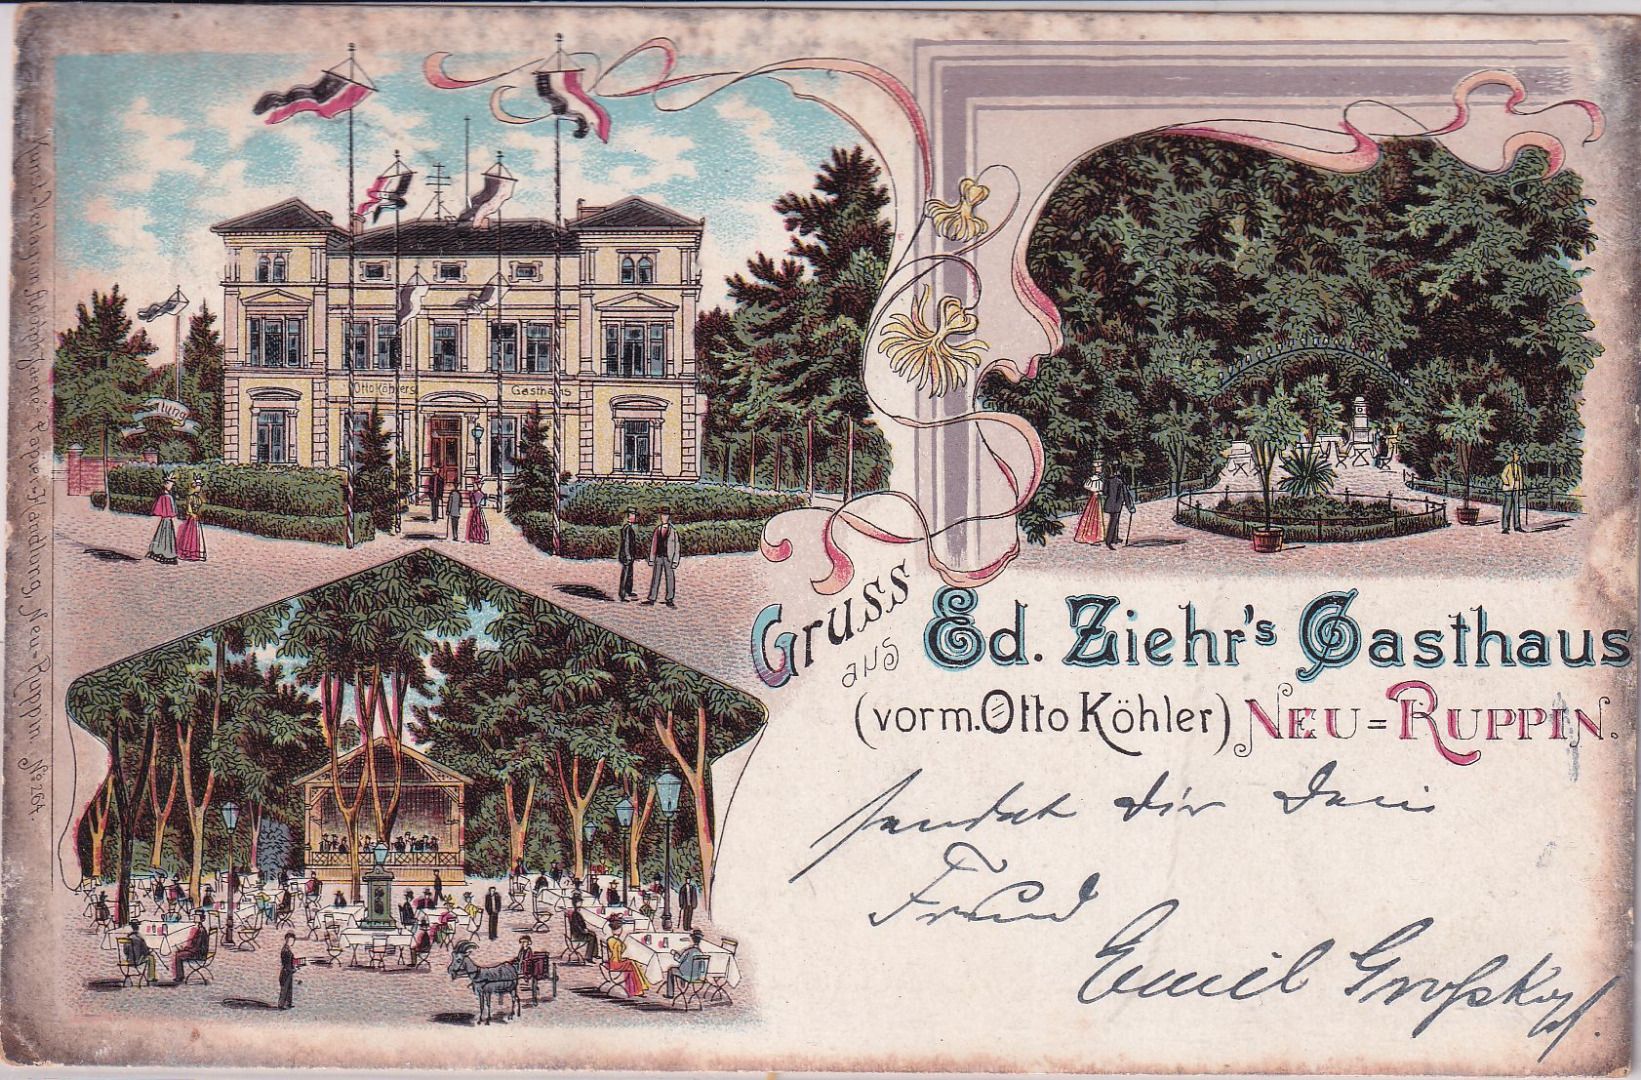 Otto Köhlers Gasthaus
Gruss
aus
Ed. Ziehr's Gasthaus
(vorm. Otto Köhler) NEU=RUPPIN.
sendet dir Dein
Freund
Emil Großkopf.
Kunst-Verlag von
Papier-Handlung Neu-Ruppin. No 264